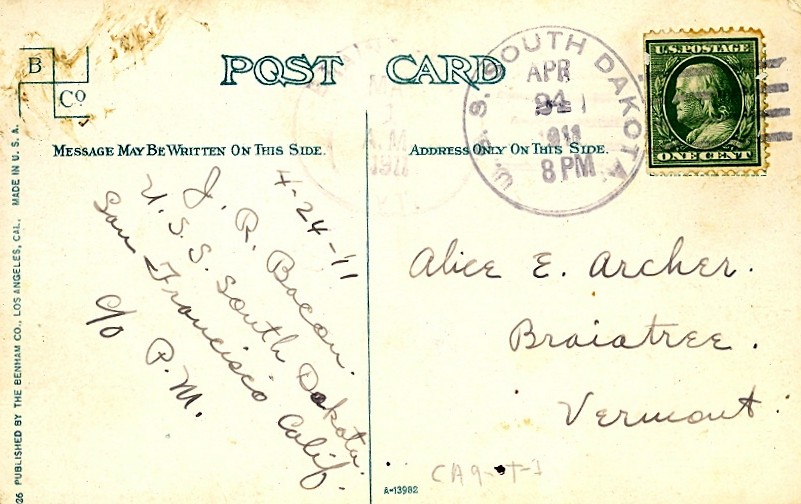 B
Cº
POST CARD
MESSAGE MAY BE WRITTEN ON THIS SIDE.
ADDRESS ONLY ON THIS SIDE.
U.S.S. SOUTH DAKOTA.
APR
24
1911
8 PM
U.S. POSTAGE
ONE CENT
A.M.
1911
4-24-11
J. R. Bacon.
U. S. S. South Dakota.
San Francisco Calif.
c/o P. M.
Alice E. Archer.
Braiatree.
Vermont.
26 PUBLISHED BY THE BENHAM CO., LOS ANGELES, CAL. MADE IN U. S. A.
A-13982